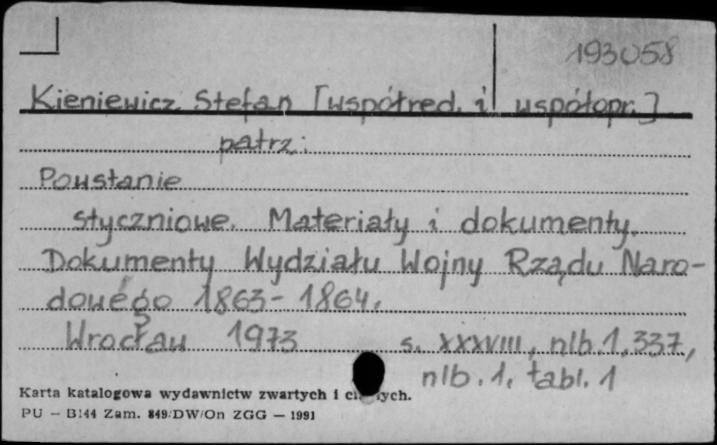 193058
Kieniewicz Stefan [współred. i współopr.]
patrz:
Powstanie
styczniowe. Materiały i dokumenty.
Dokumenty Wydziału Wojny Rządu Naro-
dowego 1863-1864.
Wrocław 1973 s. XXXVIII, nlb.1, 337,
nlb.1, tabl. 1
Karta katalogowa wydawnictw zwartych i
PU — B144 Zam. 849/DW/On ZGG — 1991